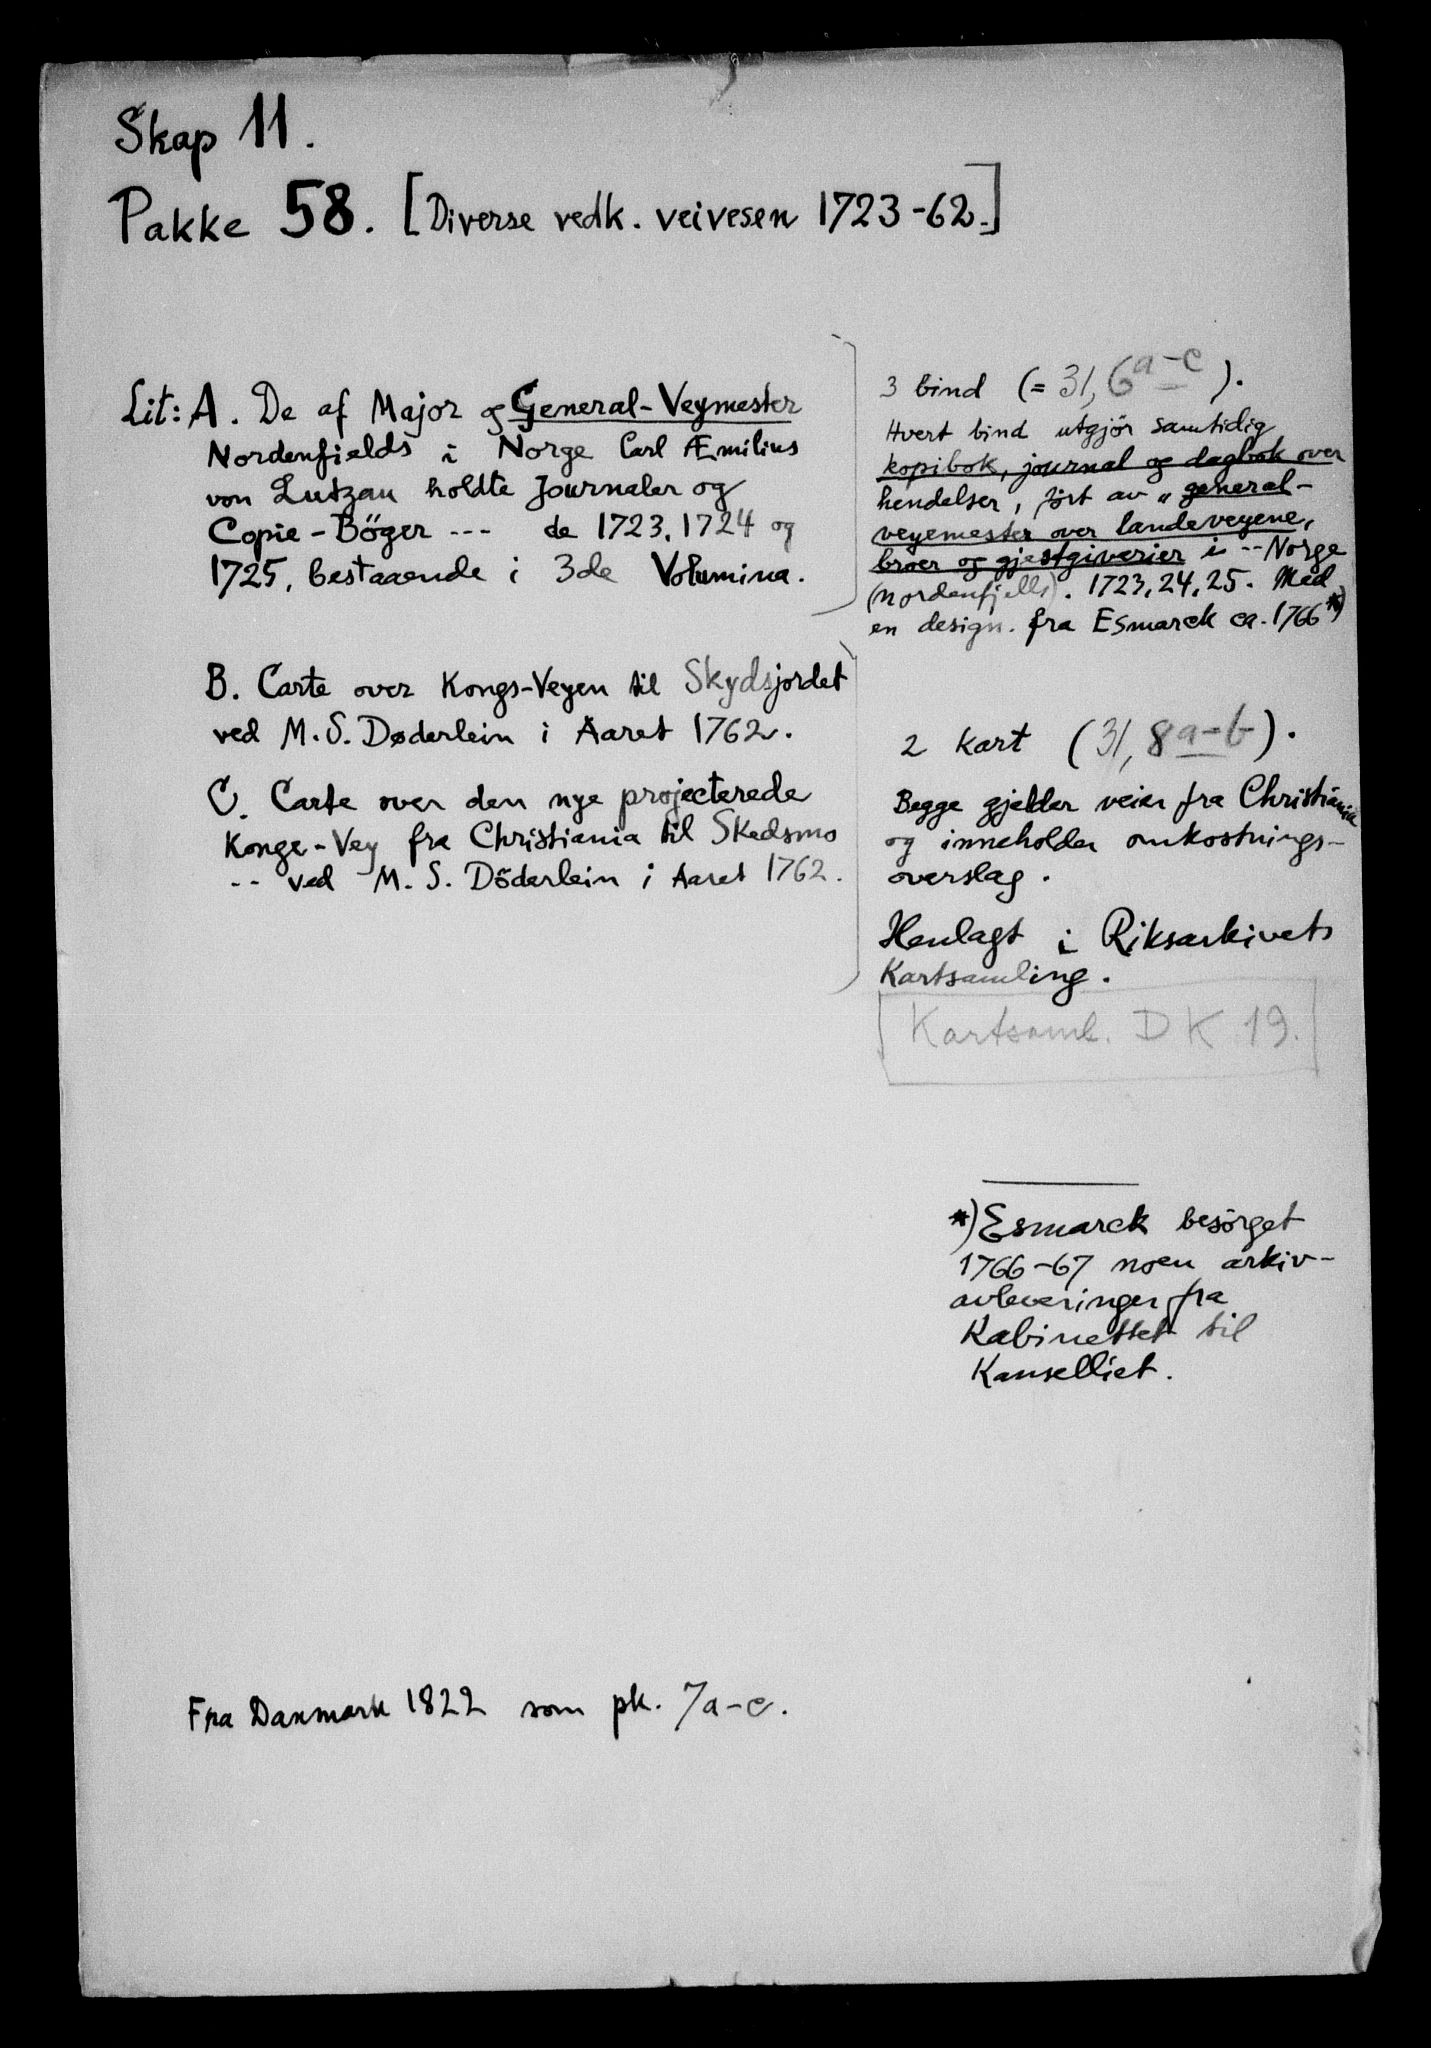 Skap 11.
Pakke 58. [Diverse vedk. veivesen 1723-62.]
Lit: A. De af Major og General-Veymester
Nordenfields i Norge Carl Æmilius
von Lutzau holdte Journaler og
Copie-Böger --- de 1723, 1724 og
1725, bestaaende i 3de Volumina.
B. Carte over Kongs-Veyen til Skydsjordet
ved M.S. Døderlein i Aaret 1762.
C. Carte over den nye projecterede
Konge-Vey fra Christiania til Skedsmo
-- ved M. S. Döderlein i Aaret 1762.
3 bind (= 31, 6 a-c).
Hvert bind utgjör samtidig
kopibok, journal og dagbok over
hendelser, ført av „general-
veyemester over landeveyene,
broer og gjestgiverier i -- Norge
(nordenfjells). 1723, 24, 25. Med
en design. fra Esmarck ca. 1766 *)
2 kart (31, 8 a-b).
Begge gjelder veier fra Christiania
og inneholder omkostnings-
overslag.
Henlagt i Riksarkivets
Kartsamling.
Kartsaml. DK 19.
*) Esmarck besörget
1766-67 noen arkiv-
avleveringer fra
Kabinettet til
Kanselliet.
Fra Danmark 1822 som pk. 7a-c.